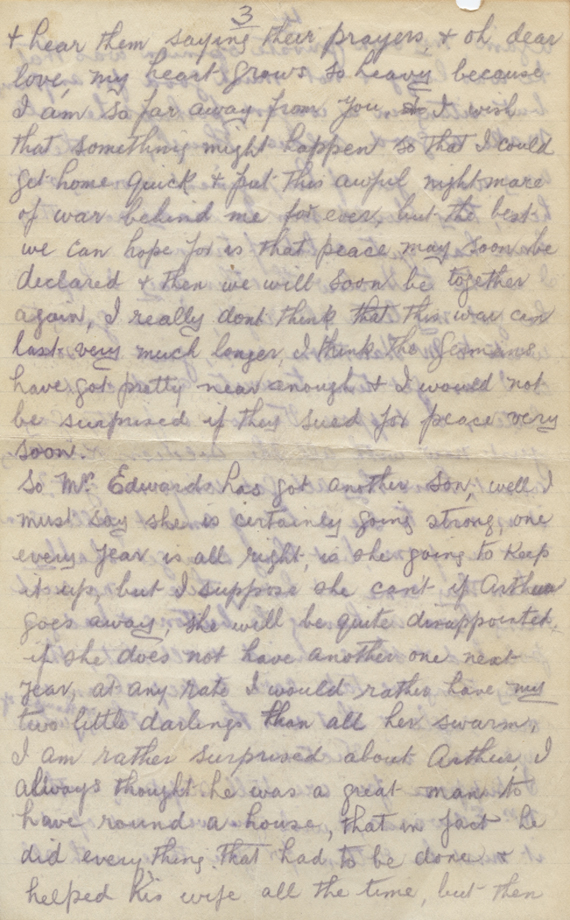 3
+ hear them saying their prayers, + oh dear
love, my heart grows so heavy because
I am so far away from you. I wish
that something might happen so that I could
get home quick + put this awful nightmare
of war behind me for ever, but the best
we can hope for is that peace may soon be
declared + then we will soon be together
again, I really dont think that this war can
last very much longer, I think the Germans
have got pretty near enough + I would not
be surprised if they sued for peace very
soon.
So Mrs. Edwards has got another son, well I
must say she is certainly going strong, one
every year is all right, is she going to keep
it up, but I suppose she cant if Arthur
goes away, she will be quite disappointed
if she does not have another one next
year, at any rate I would rather have my
two little darlings than all her swarm,
I am rather surprised about Arthur, I
always thought he was a great man to
have round a house, that in fact he
did everything that had to be done +
helped his wife all the time, but then